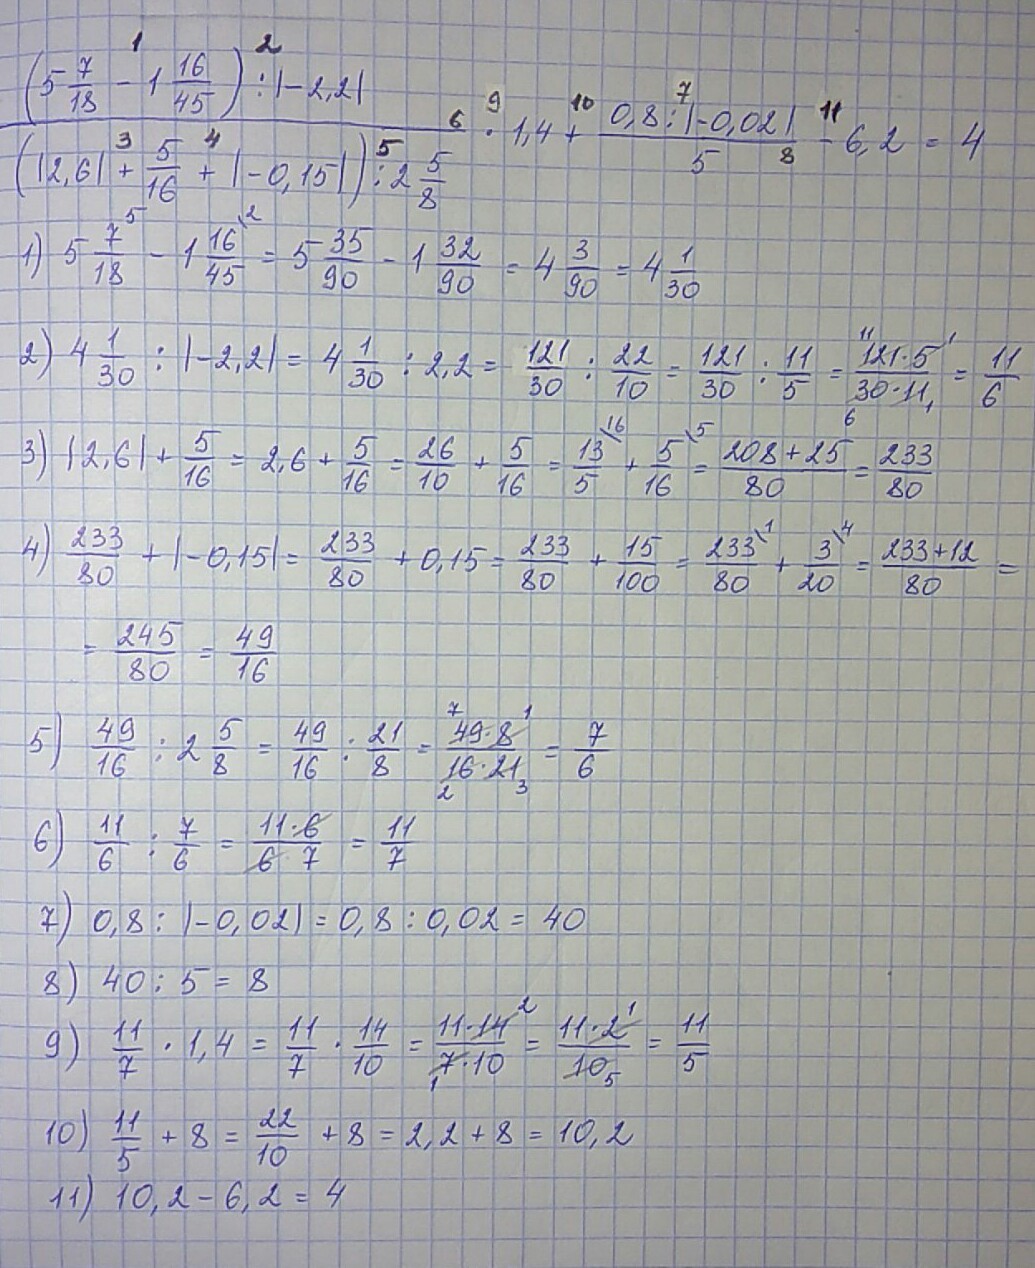 (5 7/18 - 1 16/45) : |-2,2| / (|2,6| + 5/16 + |-0,15|) : 2 5/8 · 1,4 + 0,8 : |-0,02| / 5 - 6,2 = 4
1) 5 7/18 - 1 16/45 = 5 35/90 - 1 32/90 = 4 3/90 = 4 1/30
2) 4 1/30 : |-2,2| = 4 1/30 : 2,2 = 121/30 : 22/10 = 121/30 : 11/5 = 121·5/30·11 = 11/6
3) |2,6| + 5/16 = 2,6 + 5/16 = 26/10 + 5/16 = 13/5 + 5/16 = 208+25/80 = 233/80
4) 233/80 + |-0,15| = 233/80 + 0,15 = 233/80 + 15/100 = 233/80 + 3/20 = 233+12/80 =
= 245/80 = 49/16
5) 49/16 : 2 5/8 = 49/16 : 21/8 = 49·8/16·21 = 7/6
6) 11/6 : 7/6 = 11·6/6 7 = 11/7
7) 0,8 : |-0,02| = 0,8 : 0,02 = 40
8) 40 : 5 = 8
9) 11/7 · 1,4 = 11/7 · 14/10 = 11·14/7·10 = 11·2/10 = 11/5
10) 11/5 + 8 = 22/10 + 8 = 2,2 + 8 = 10,2
11) 10,2 - 6,2 = 4